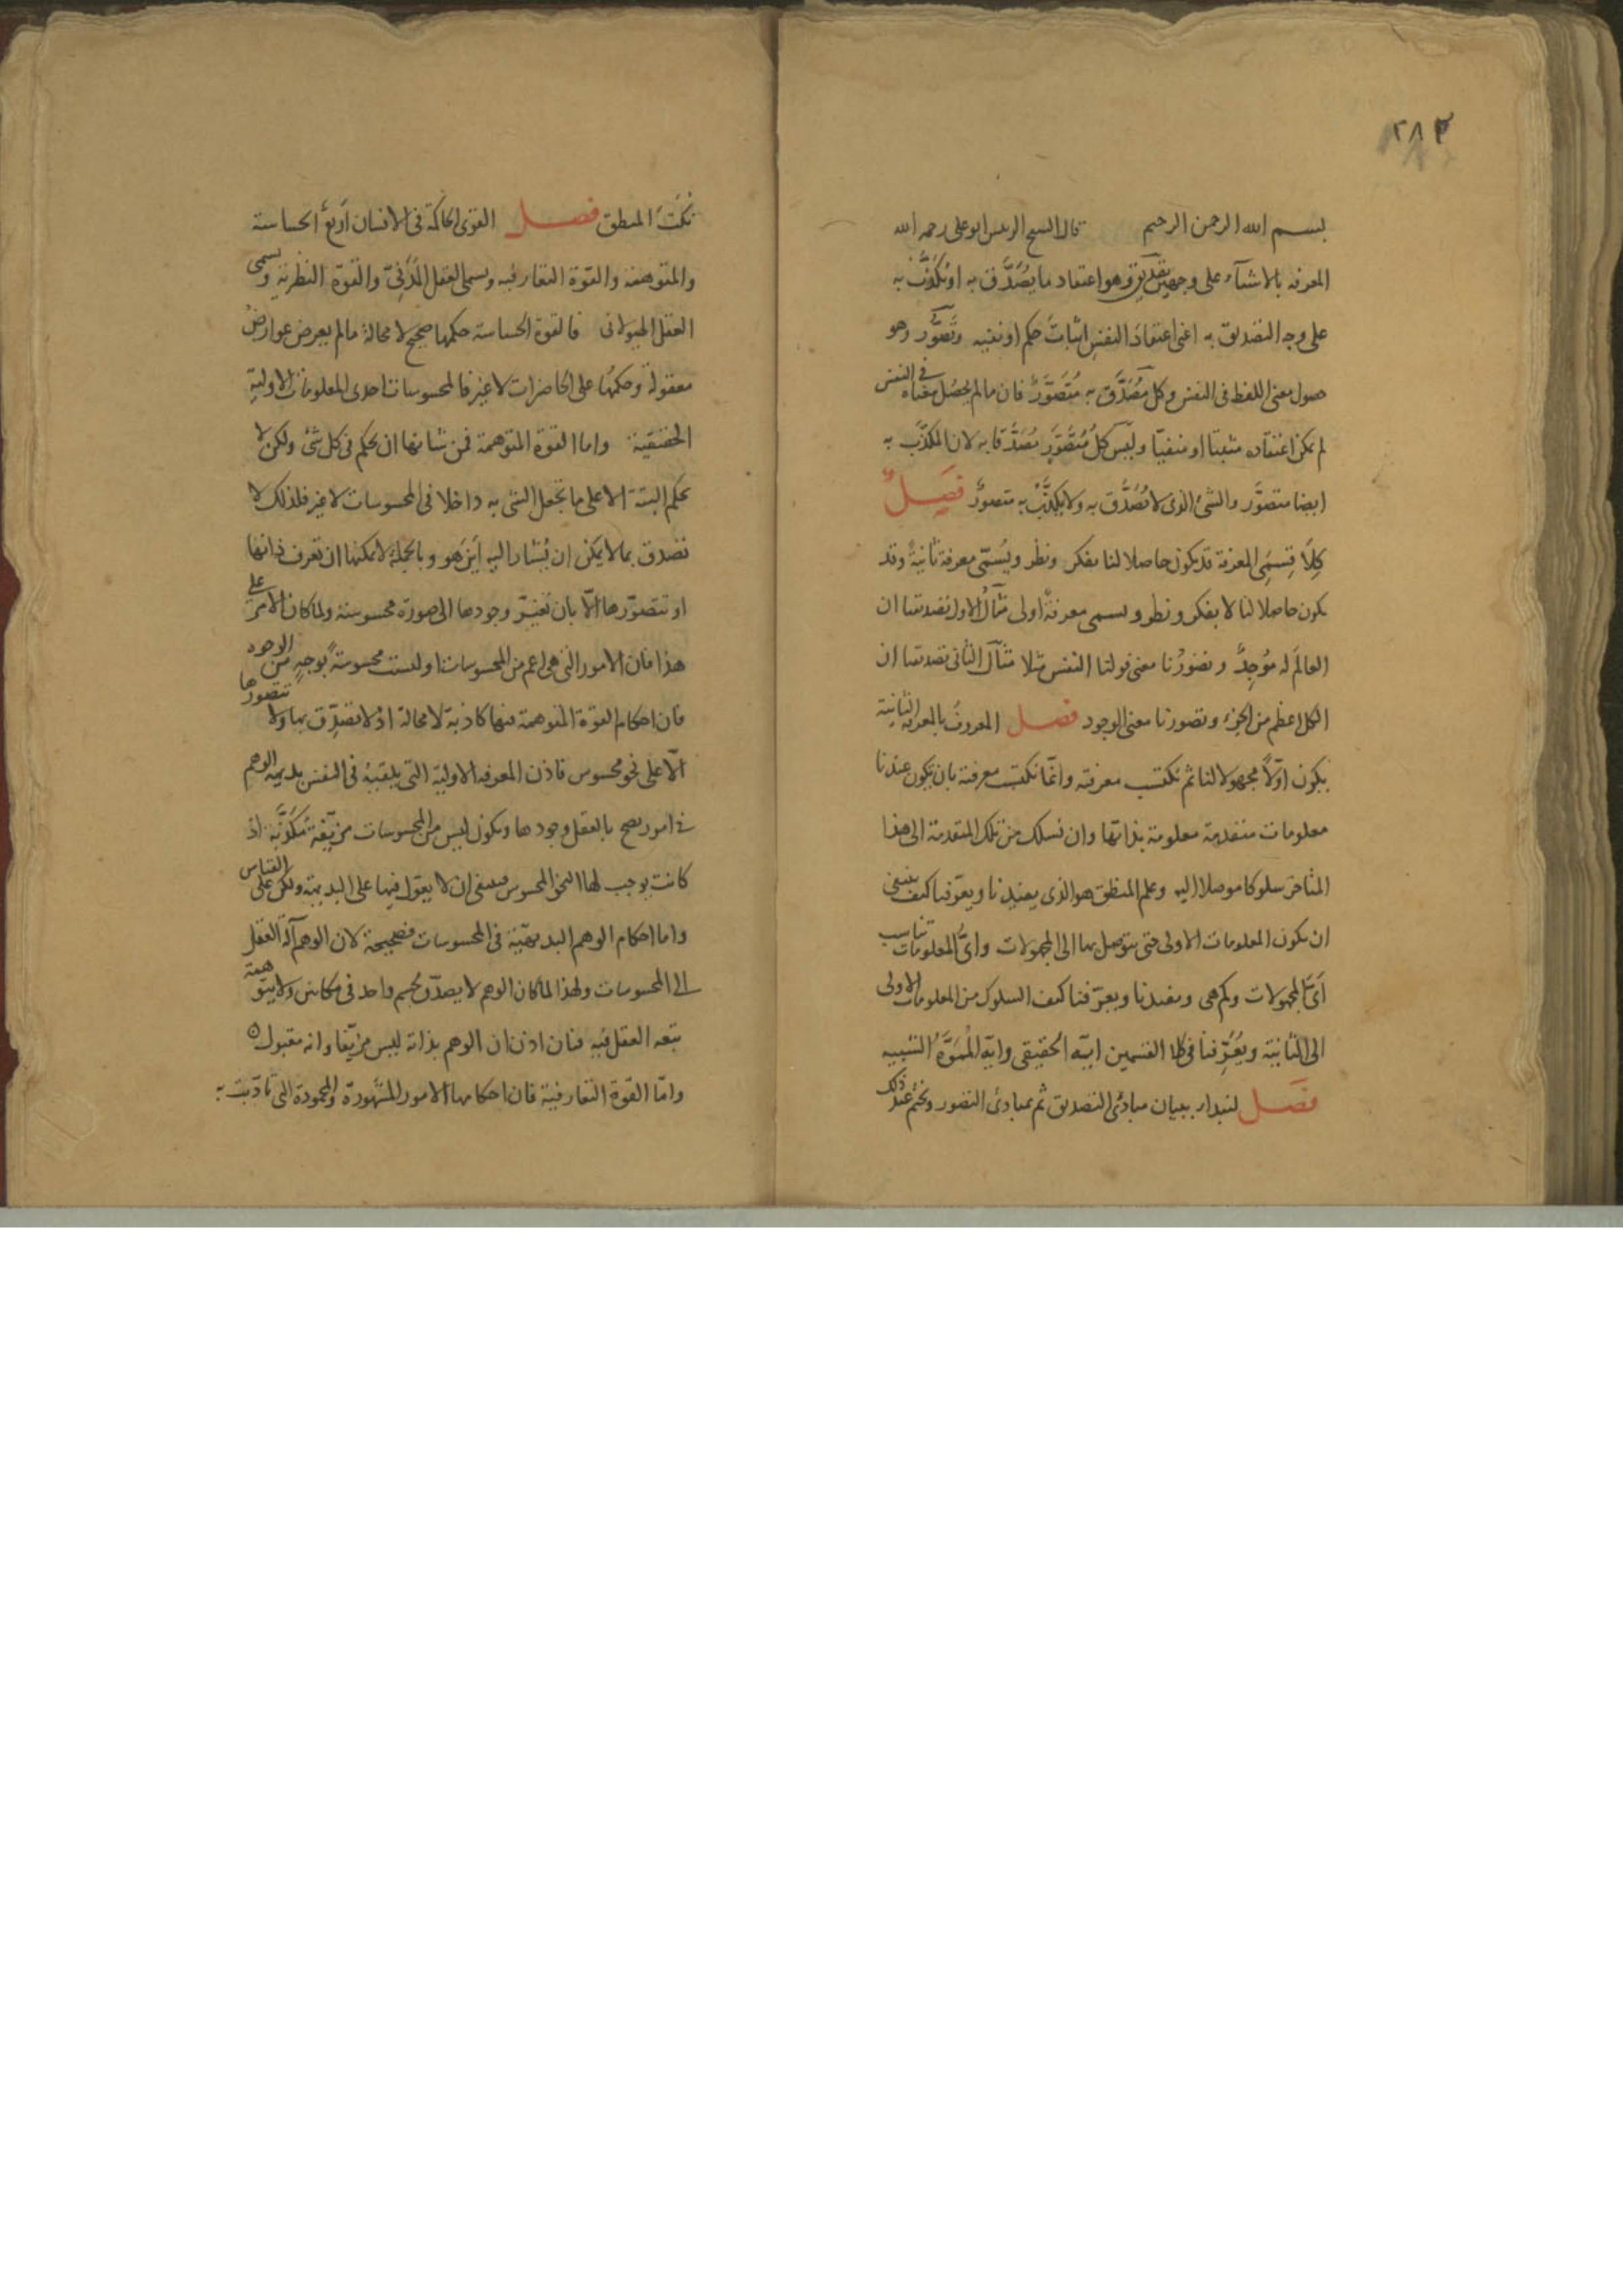 ٢٨٣
بسم الله الرحمن الرحيم قال الشيخ الرئيس ابو على رحمه الله
المعرفه بالاشيآء على وجهين تصديق وهو اعتقاد ما يُصَدَّق به او يُكَذَّب به
على وجه التصديق به اعنى اعتقادَ النفسِ اثباتَ حكم او نفيه وتَصَوُّر وهو
حصول معنى اللفظ فى النفس وكل مُصَدَّق به مُتَصَوَّرٌ فان ما لم يحصُل معناه فى النفس
لم يمكن اعتقاده مثبتا او منفيّا وليس كلُ مُتَصَوَّرٍ مُصَدَّقا به لان المكذَّب به
ايضا متصوَّر والشئ الذى لا يُصَدَّق به ولا يكذَّبُ به متصوَّر فصل
كِلَا قِسمَىِ المعرفة قد يكون حاصلا لنا بفكر ونظر ويُسَمّى معرفة ثانيةً وقد
يكون حاصلا لنا لا بفكر ونظر ويسمى معرفةً اولى مثالُ الاول تصديقنا ان
العالَم له مُوجِدٌ وتصوّرُنا معنى قولنا النفس مثلا مثال الثانى تصديقنا ان
الكل اعظم من الجزء وتصورنا معنى الوجود فصل المعروف بالمعرفه الثانية
يكون اوّلاً مجهولا لنا ثم نكتسب معرفته وانّما نكتسب معرفته بان يكون عندنا
معلومات متقدمة معلومة بذاتها وان نسلك من تلك المتقدمة الى هذا
المتاخر سلوكا موصلا اليه وعلم المنطق هو الذى يفيدنا ويعرّفنا كيف ينبغى
ان يكون المعلومات الاولى حتى يتوصل بها الى المجهولات واىُّ المعلومات تناسب
اَىَّ المجهولات وكم هى ويفيدنا ويعرّفنا كيف السلوك من المعلومات الاولى
الى الثانية ويُعَرِّفنا فى كلا القسمين ايّه الحقيقى وايّه الْمُمَوَّه الشبيه
فصل لنبدا ببيان مبادئ التصديق ثم بمبادئ التصور ونختم عند ذلك
نُكَتَ المنطق فصل القوى الحاكمة فى الانسان اربَعٌ الحساسة
والمتوهمة والقوّة التعارفيه ويسمى العقل المَدَنِىّ والقوّة النظريه ويسمى
العقل الهيولانى فالقوة الحساسة حكمها صحيح لا محالة ما لم يعرض عوارضُ
معقولة وحكمُها على الحاضرات لا غير فالمحسوسات احدى المعلومات الاولية
الحقيقية واما القوة المتوهمة فمن شانها ان يحكم فى كل شئ ولكن لا
يحكم البتة الا على ما تجعل الشى به داخلا فى المحسوسات لا غير فلذلك لا
تصدق بما لا يمكن ان يُشار اليه اَيْنَ هو وبالجملة لا يمكنها ان تعرف ذاتها
او تتصوّرها الّا بان تغيّر وجودها الى صورة محسوسة ولما كان الامر على
هذا فان الامور التى هى اعم من المحسوسات او ليست محسوسةً بوجهٍ من الوجوه
فان احكام القوّة المتوهمة فيها كاذبة لا محالة اذ لا تصدّق بها ولا تتصورها
الّا على نحو محسوس فاذن المعرفه الاولية التى يلقيه فى النفس بديهة الوهم
فى امور يصح بالعقل وجودها ويكون ليس من المحسوسات مزيّفة مكذوبة اذ
كانت يوجب لها النحو المحسوس فينبغى ان لا يعوّل فيها على البديهة ولكن على القياس
واما احكام الوهم البديهيّة فى المحسوسات فصحيحة لان الوهم آلة العقل
الى المحسوسات ولهذا لما كان الوهم لا يصدّق بجسم واحد فى مكانين ولا يتوهمه
تبعه العقل فيه فبان اذن ان الوهم بذاته ليس مزيّفا وانه مقبول
وامّا القوة التعارفية فان احكامها الامور المشهورة والمحمودة التى تادّبت